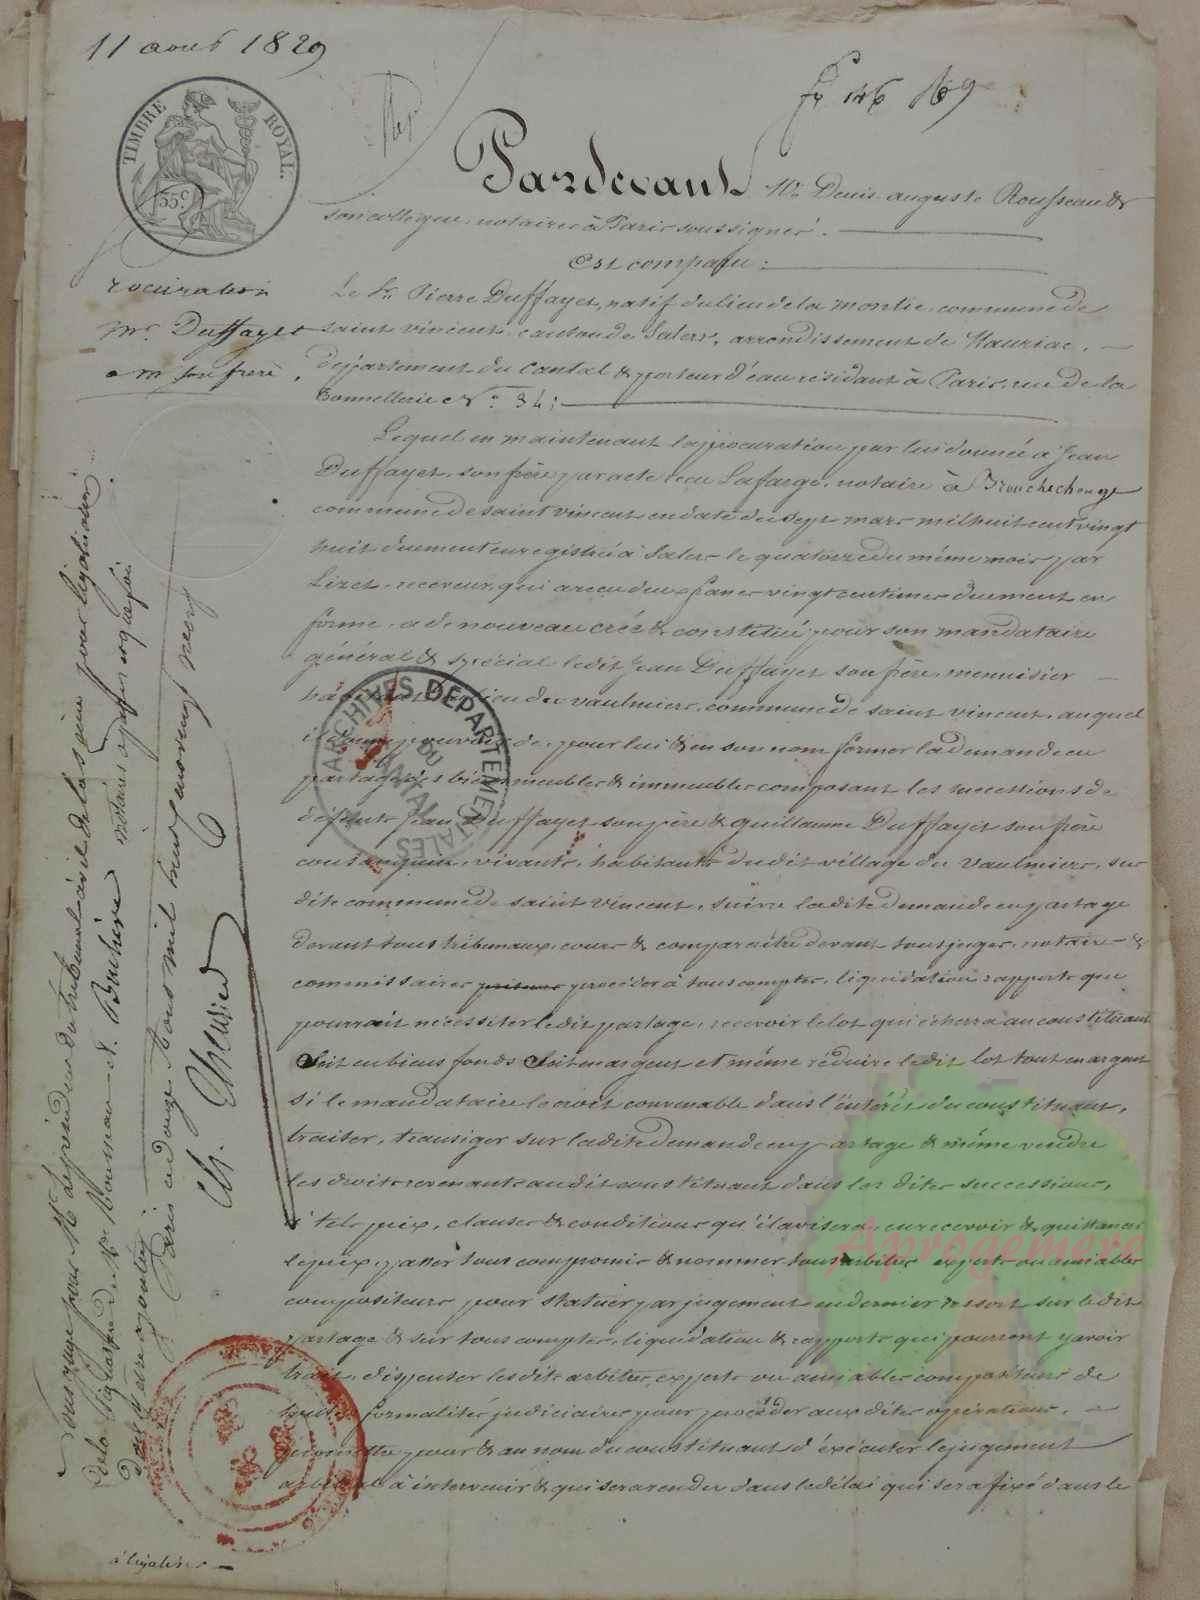 11 aout 1829
TIMBRE ROYAL.
35c.
Pardevant Me Denis auguste Rousseau &
son collegue, notaires à Paris soussignés.
Est comparu :
rocuration
mr. Duffayet
a m son frère.
Le Sr. Pierre Duffayet, natif du lieu de la montie, commune de
saint vincent, canton de Salers, arrondissement de Mauriac,
departement du Cantal & porteur d'eau résidant à Paris, rue de la
Tonnellerie No. 34;
Lequel en maintenant la procuration par lui donnée à Jean
Duffayet, son frère par acte reçu Lafarge, notaire à
commune de saint vincent en date du sept mars mil huit cent vingt
huit duement enregistrée à Salers le quatorze du même mois par
Lizet, receveur, qui a reçu deux francs vingt centimes duement en
forme, a de nouveau créé & constitué pour son mandataire
général & spécial ledit Jean Duffayet son frère, menuisier
habitant lieu du vaulmiers, commune de saint vincent, auquel
il donne pouvoir de, pour lui & en son nom former la demande en
partage des biens meubles & immeubles composant les successions de
défunts Jean Duffayet son père & guillaume Duffayet son frère
consanguin, vivants, habitants dudit village du vaulmiers, sus
dite commune de saint vincent, suivre ladite demande en partage
devant tous tribunaux, cours & comparaitre devant tous juges, notaires &
commissaires procéder à tous comptes, liquidation rapports que
pourrait nécessiter ledit partage, recevoir le lot qui écherra au constituant
Soit en biens fonds Soit en argent et même réduire ledit lot tout en argent
si le mandataire le croit convenable dans l'intérêt du constituant,
traiter, transiger sur ladite demande en partage & même vendre
les droits revenants audit constituant dans les dites successions,
à tels prix, clauses & conditions qu'il avisera, en recevoir & quittancer
le prix, passer tous compromis & nommer tous arbitres experts ou amiables
compositeurs pour statuer par jugement en dernier ressort sur ledit
partage & sur tous comptes, liquidation & rapports qui pourront y avoir
trait, dispenser lesdits arbitres experts ou amiables compositeurs de
toutes formalités judiciaires pour procéder aux dites opérations,
promettre pour & au nom du constituant d'exécuter le jugement
arbitral à intervenir & qui sera rendu dans le délai qui sera fixé dans le
à légaliser
ARCHIVES DEPARTEMENTALES
DU
CANTAL
Aprogemere
Vous par nous Me le président du tribunal civil de la seine pour légalisation
de la signature de Me Rousseau et
notaires
Paris ce douze aout mil huit cent vingt neuf